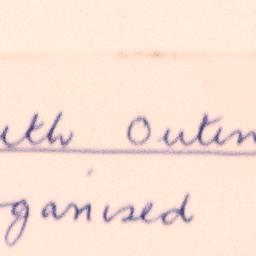 uth Outin
rganised